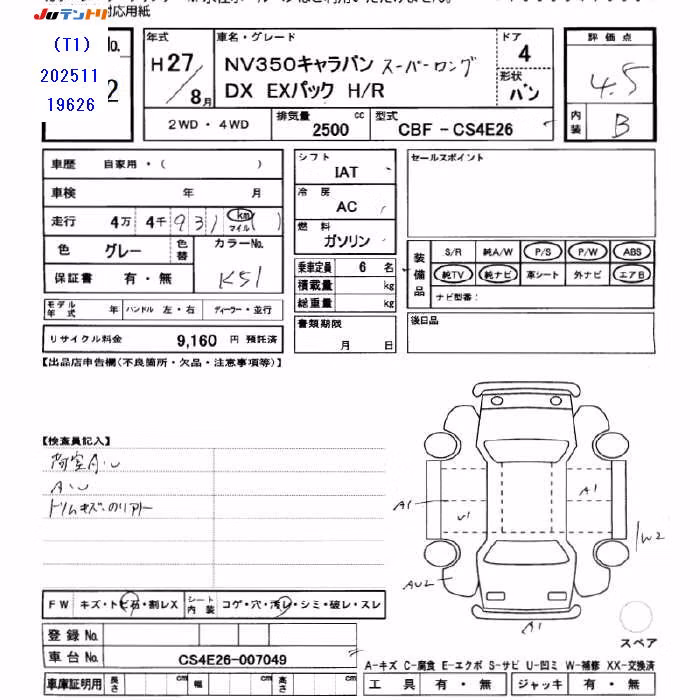 JUテントリ
対応用紙
(T1)
202511
19626
No.
2
年式
H27/8月
車名・グレード
NV350キャラバン スーパーロング
DX EXパック H/R
ドア
4
形状
バン
評価点
4.5
内装
B
2WD・4WD
排気量
2500 cc
型式
CBF-CS4E26
車歴 自家用・( )
車検 年 月
走行 4万 4千 931 km マイル ( )
色 グレー 色替 カラーNo.
K51
保証書 有・無
モデル年式 年 ハンドル 左・右 ディーラー・並行
リサイクル料金 9,160 円 預託済
シフト
IAT
冷房
AC
燃料
ガソリン
乗車定員 6 名
積載量 kg
総重量 kg
書類期限
月 日
セールスポイント
装備品
S/R 純A/W P/S P/W ABS
純TV 純ナビ 革シート 外ナビ エアB
ナビ型番:
後日品
【出品店申告欄(不良箇所・欠品・注意事項等)】
【検査員記入】
荷室A.U
A.U
ドリムキズ.のリアリー
A1
U1
A1
W2
AU2
A1
FW キズ・トビ石・割レX シート内装 コゲ・穴・汚レ・シミ・破レ・スレ
登録No.
車台No. CS4E26-007049
車庫証明用 長さ cm 幅 cm 高さ cm
スペア
A-キズ C-腐食 E-エクボ S-サビ U-凹ミ W-補修 XX-交換済
工具 有・無 ジャッキ 有・無